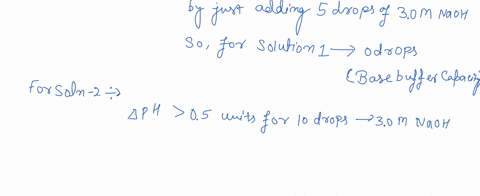 by just adding 5 drops of 3.0 M NaOH
So, for Solution 1 → 0 drops
(Base buffer Capacity
For Soln-2 ÷>
ΔPH > 0.5 units for 10 drops → 3.0 M NaOH